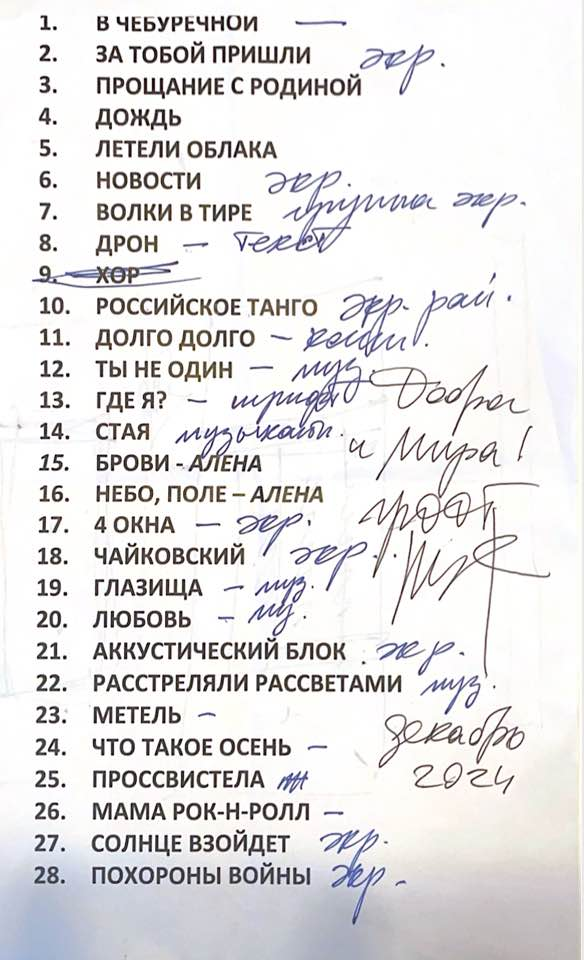 1. В ЧЕБУРЕЧНОЙ —
2. ЗА ТОБОЙ ПРИШЛИ экр.
3. ПРОЩАНИЕ С РОДИНОЙ
4. ДОЖДЬ
5. ЛЕТЕЛИ ОБЛАКА
6. НОВОСТИ экр.
7. ВОЛКИ В ТИРЕ группа экр.
8. ДРОН — Текст
9. ХОР
10. РОССИЙСКОЕ ТАНГО экр. рай.
11. ДОЛГО ДОЛГО —
12. ТЫ НЕ ОДИН — муз.
13. ГДЕ Я? — шрифт Добра
14. СТАЯ музыканты. и Мира!
15. БРОВИ - АЛЕНА
16. НЕБО, ПОЛЕ – АЛЕНА
17. 4 ОКНА — экр.
18. ЧАЙКОВСКИЙ экр.
19. ГЛАЗИЩА — муз.
20. ЛЮБОВЬ — муз.
21. АККУСТИЧЕСКИЙ БЛОК экр.
22. РАССТРЕЛЯЛИ РАССВЕТАМИ муз.
23. МЕТЕЛЬ —
24. ЧТО ТАКОЕ ОСЕНЬ — декабрь
25. ПРОССВИСТЕЛА 2024
26. МАМА РОК-Н-РОЛЛ —
27. СОЛНЦЕ ВЗОЙДЕТ экр.
28. ПОХОРОНЫ ВОЙНЫ экр.